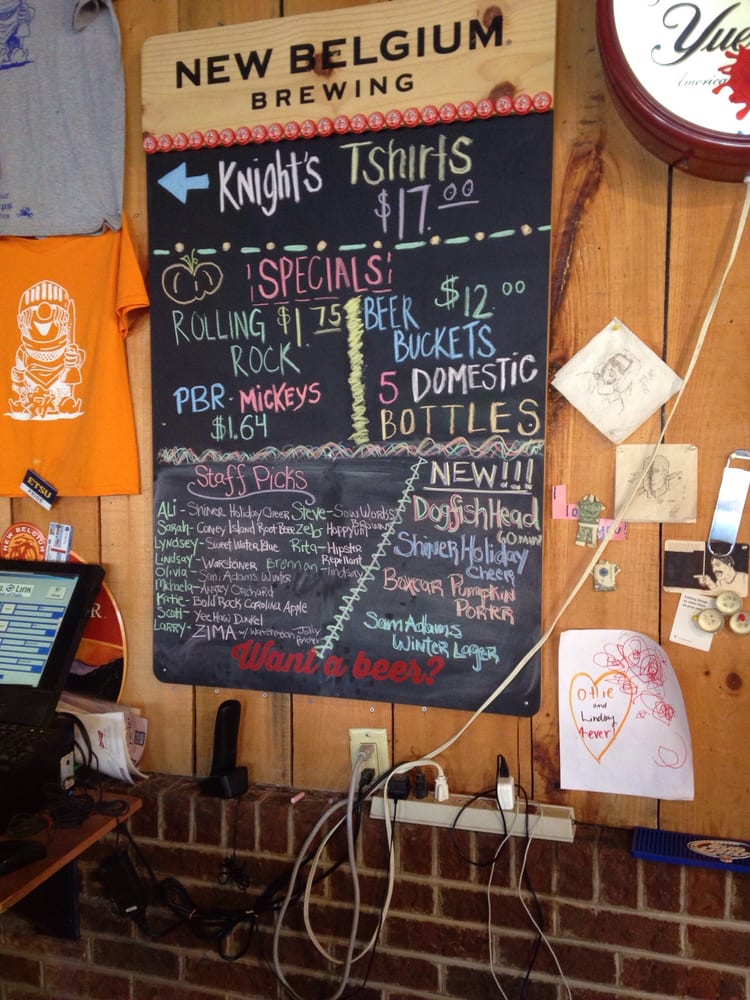 NEW BELGIUM
BREWING
Yue
America
Knight's Tshirts
$17.00
SPECIALS
ROLLING $1.75
ROCK
PBR - MICKEYS
$1.64
BEER $12.00
BUCKETS
5 DOMESTIC
BOTTLES
Staff Picks
Ali - Shiner Holiday Cheer
Sarah - Coney Island Root Beer
Lyndsey - Sweet Water Blue
Lindsay - Warsteiner
Olivia - Sam Adams Winter
Michaela - Angry Orchard
Katie - Bold Rock Carolina Apple
Scott - Yee Haw Dunkel
Larry - ZIMA w/ Watermelon Jolly
Steve - Sow Words
Zeb - Happy
Rita - Hipster
Repellant
Brennan - Lindsay
NEW!!!
Dogfish Head
60 min
Shiner Holiday
Cheer
Boxcar Pumpkin
Porter
Sam Adams
Winter Lager
Want a beer?
ETSU
NEW BELGIUM
LINK
Ollie
and
Lindsay
4-ever!